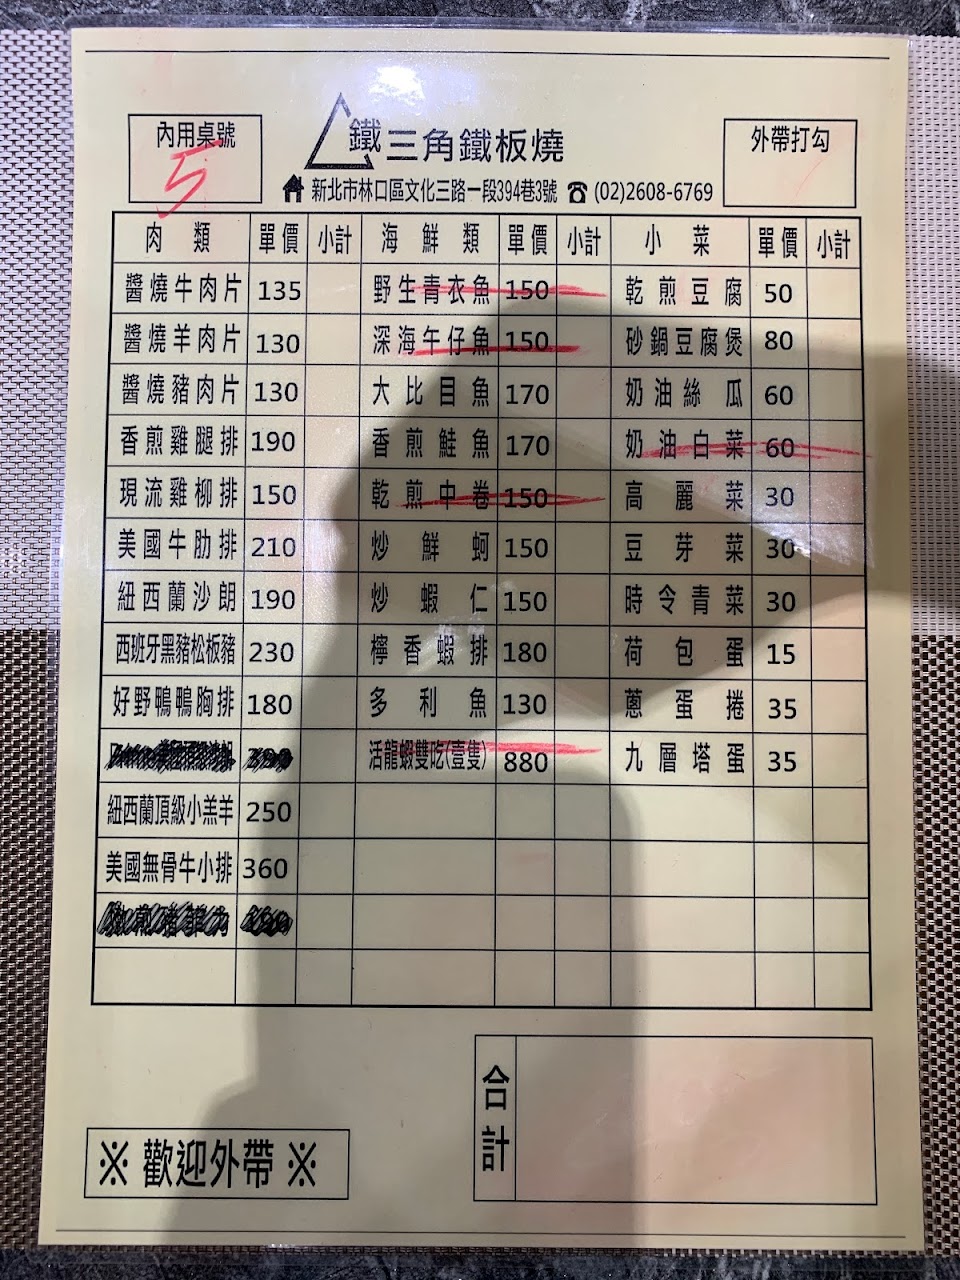 內用桌號
5
鐵三角鐵板燒
新北市林口區文化三路一段394巷3號 (02)2608-6769
外帶打勾
肉類 單價 小計 海鮮類 單價 小計 小菜 單價 小計
醬燒牛肉片 135 野生青衣魚 150 乾煎豆腐 50
醬燒羊肉片 130 深海午仔魚 150 砂鍋豆腐煲 80
醬燒豬肉片 130 大比目魚 170 奶油絲瓜 60
香煎雞腿排 190 香煎鮭魚 170 奶油白菜 60
現流雞柳排 150 乾煎中卷 150 高麗菜 30
美國牛肋排 210 炒鮮蚵 150 豆芽菜 30
紐西蘭沙朗 190 炒蝦仁 150 時令青菜 30
西班牙黑豬松板豬 230 檸香蝦排 180 荷包蛋 15
好野鴨鴨胸排 180 多利魚 130 蔥蛋捲 35
活龍蝦雙吃(壹隻) 880 九層塔蛋 35
紐西蘭頂級小羔羊 250
美國無骨牛小排 360
合計
※ 歡迎外帶 ※